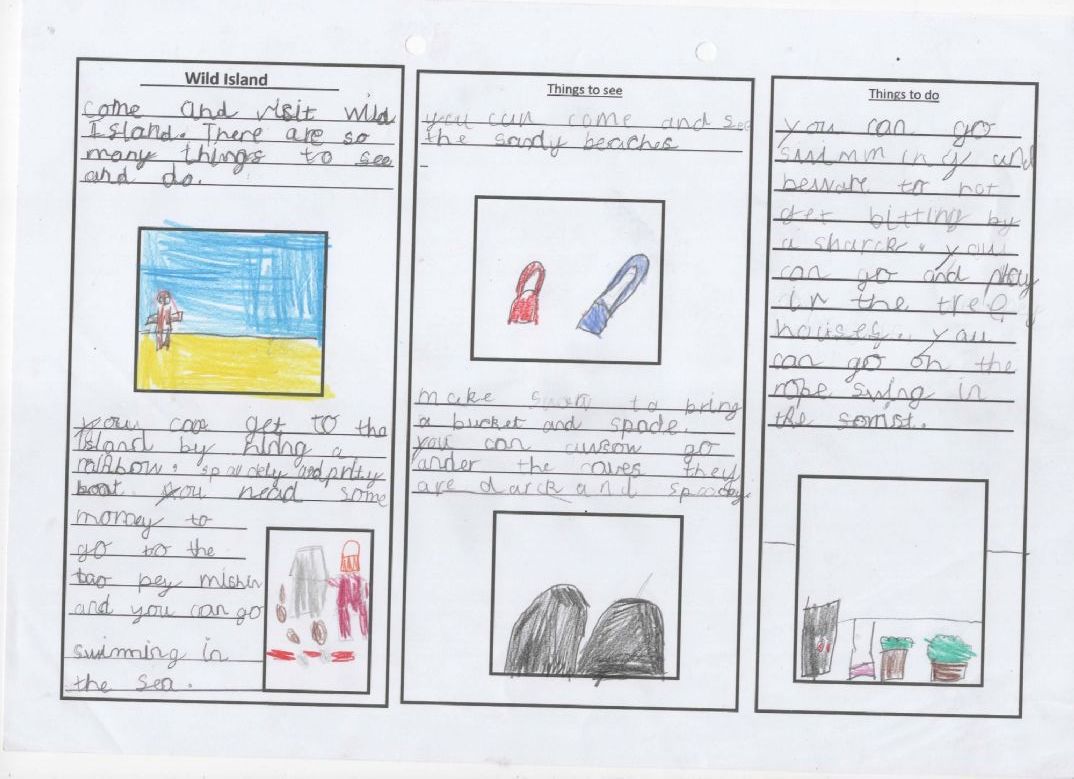 Wild Island
come and visit wild
Island. There are so
many things to see
and do.
you can get to the
Island by hiring a
rainbow. sparckely and prity
boat you need some
money to
go to the
tao pey mishin
and you can go
swimming in
the sea.
Things to see
you can come and see
the sandy beaches
make to bring
a bucket and spade.
you can go
under the caves they
are darck and spooky.
Things to do
you can go
swimming and
beware to not
get bitting by
a sharck. you
can go and play
in the tree
houses. you
can go on the
rope swing in
the